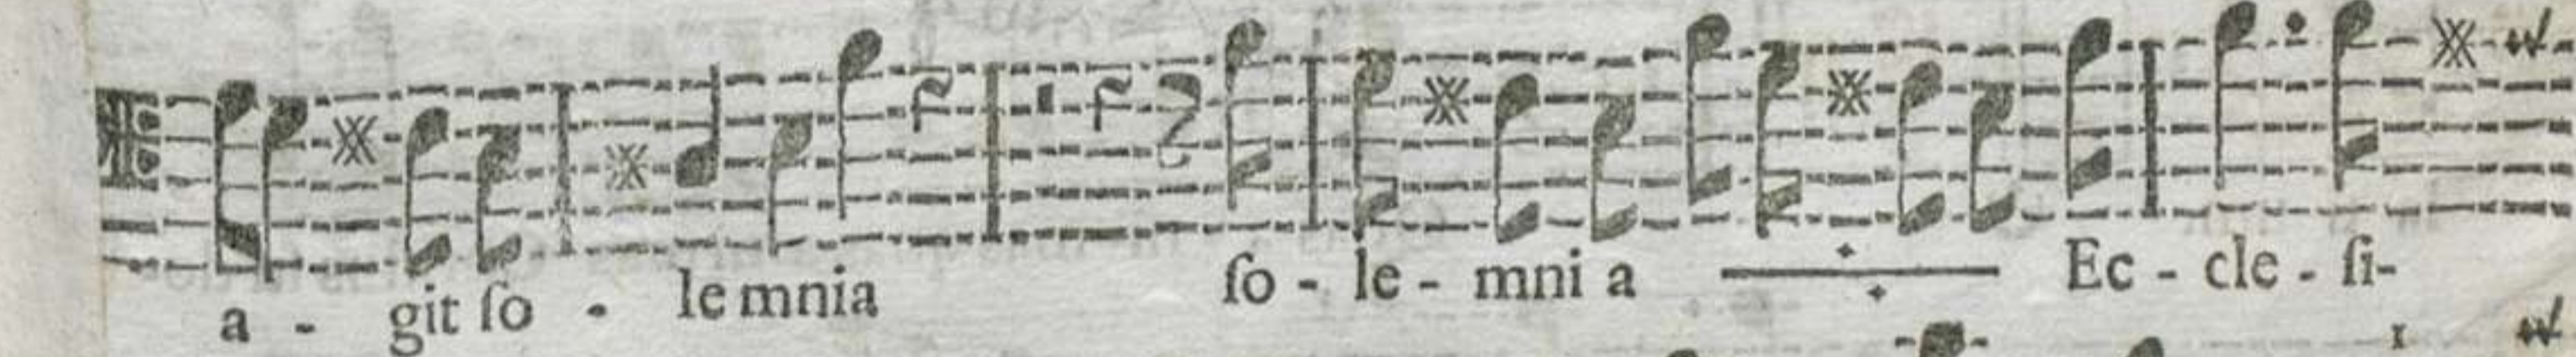 a - git ſo - le mnia ſo - le - mni a Ec - cle - ſi-